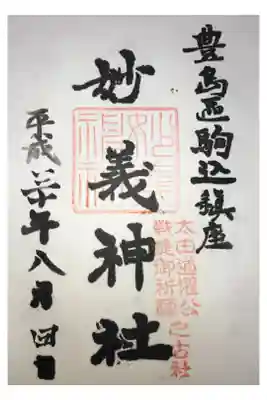 豊島區駒込鎮座
太田道灌公
戦捷御祈願
之古社
妙義神社
平成 年八月四日